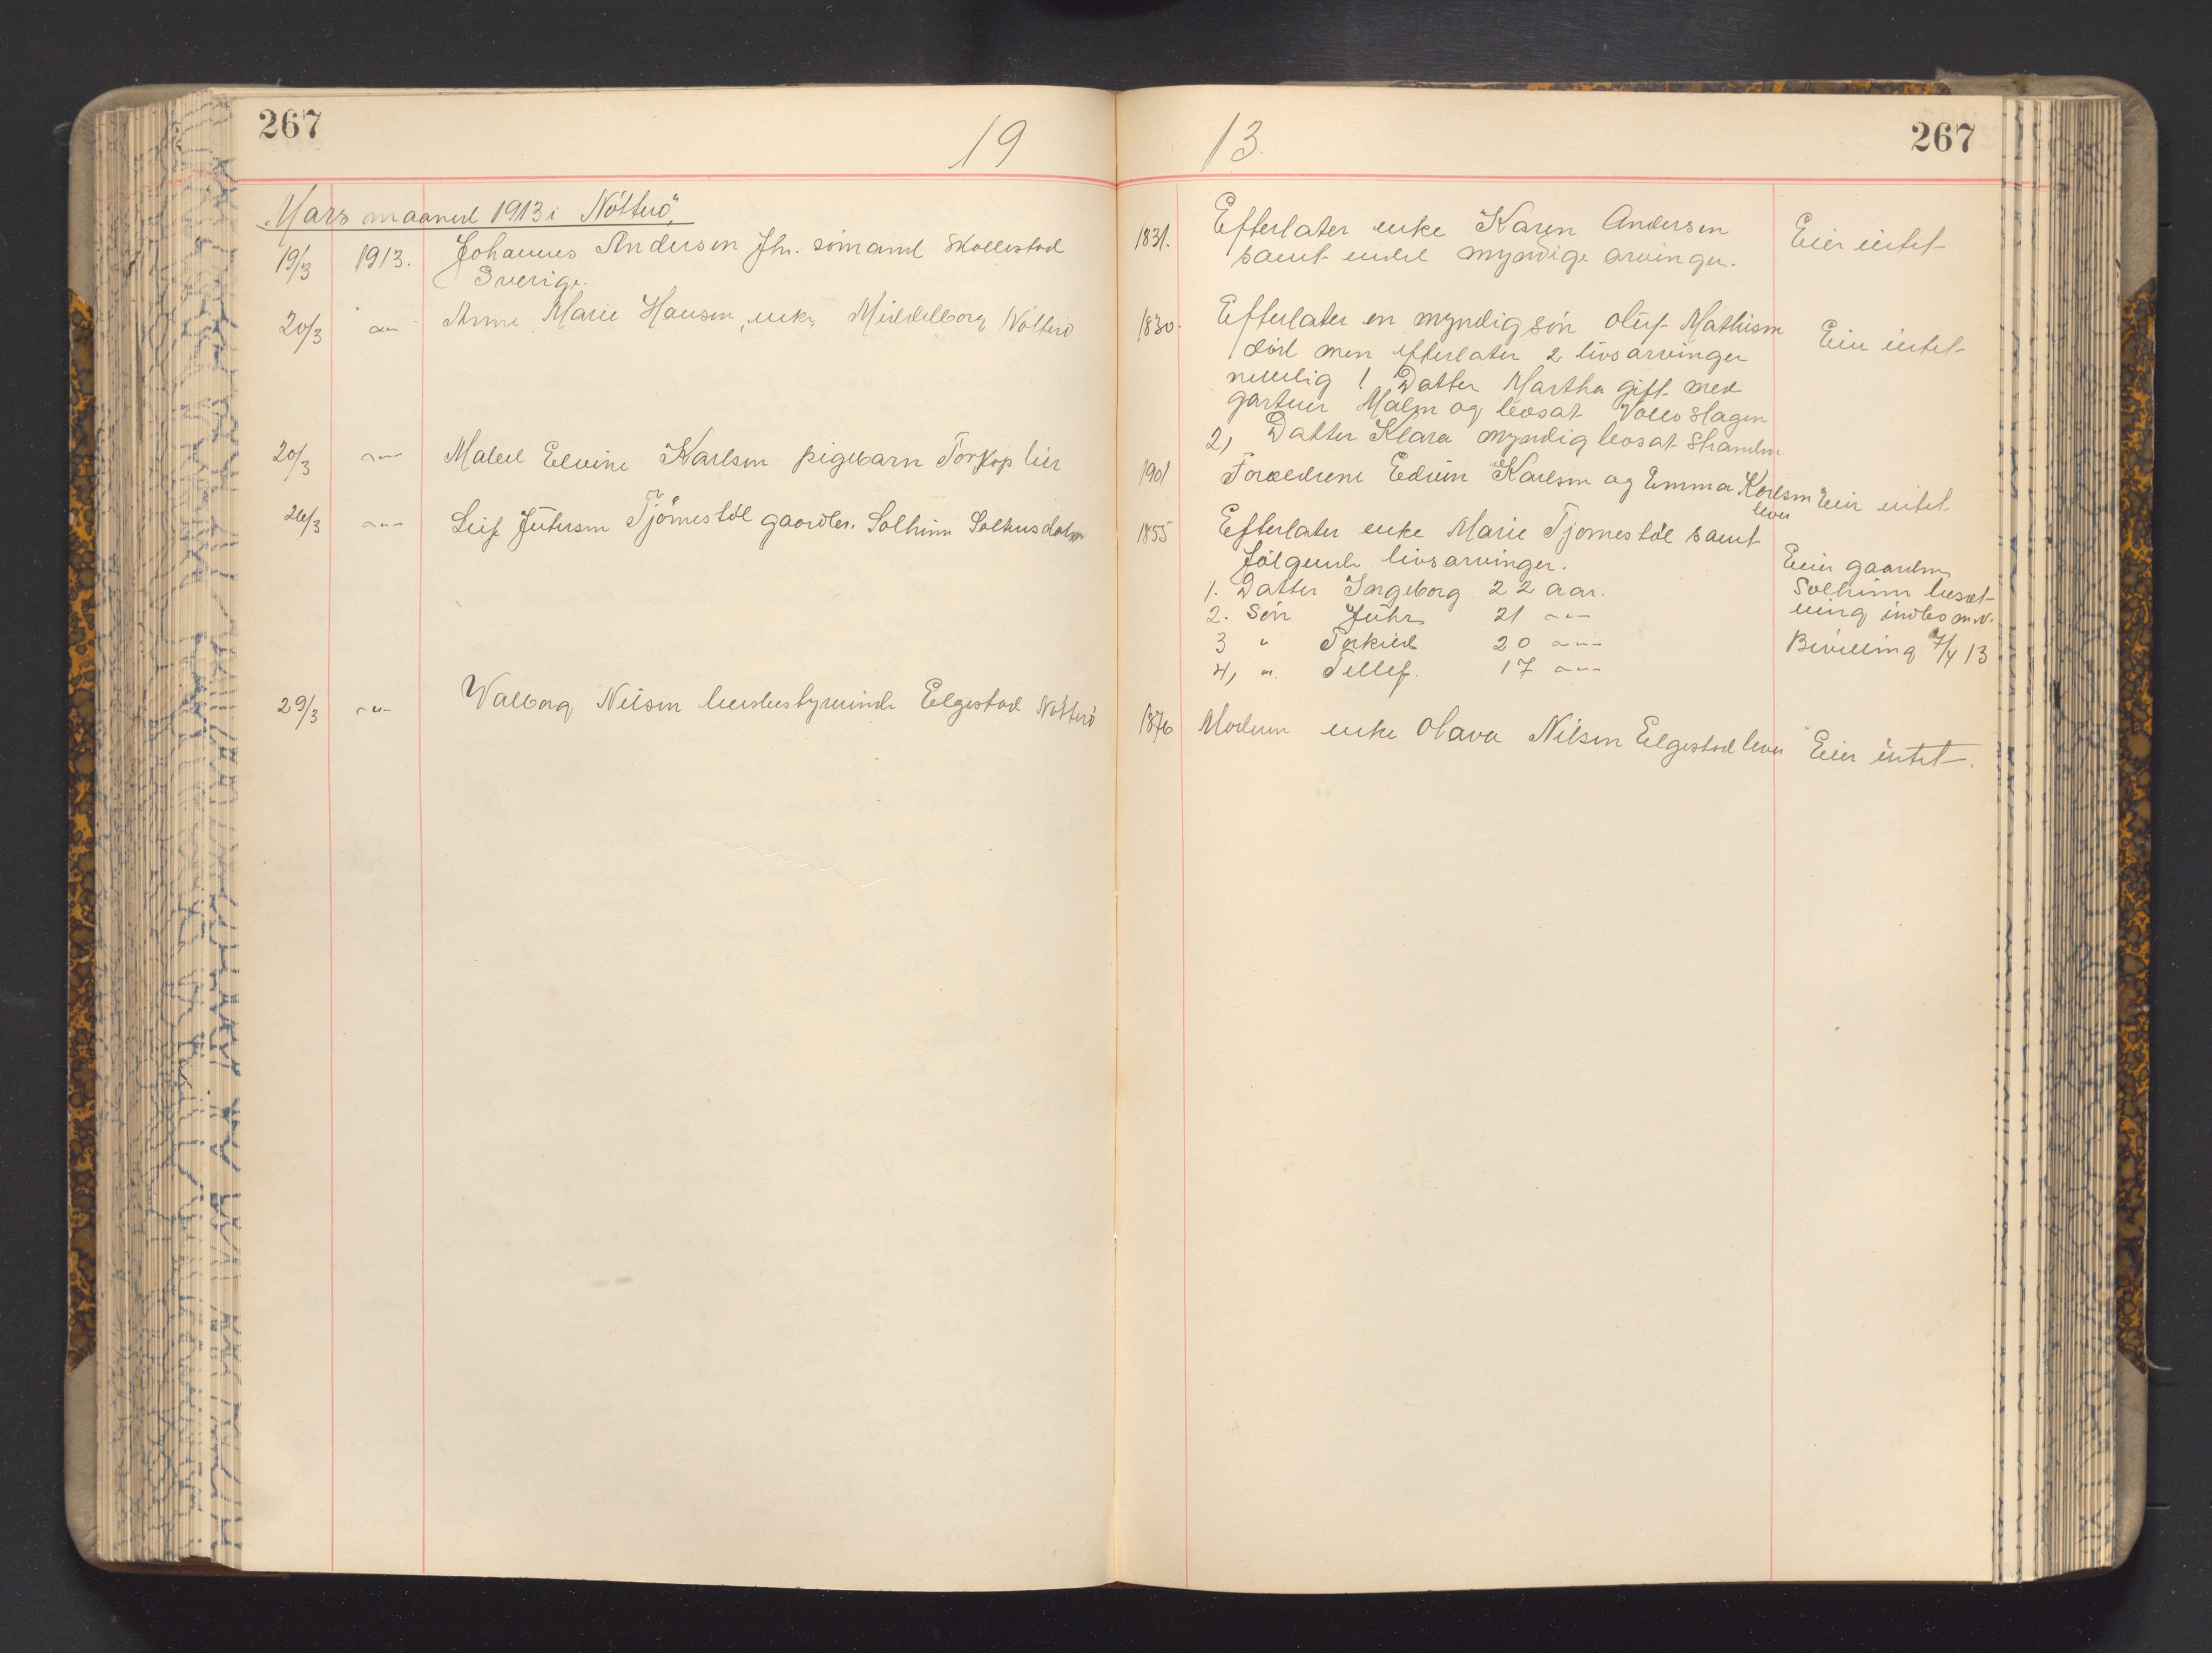 267
19
13.
267
Mars maaned 1913 i Nötterö
19/3 1913. Johannes Andersen fhv. sömand Skollestad
Sverige.
1831. Efterlater enke Karen Andersen
samt endel myndige arvinger.
Eier intet
20/3 -"- Anne Marie Hansen, enke, Middelborg Nötterö
1830. Efterlater en myndig sön Oluf Mathisen
död men efterlater 2 livsarvinger
nemlig 1 Datter Martha gift med
gartner Malm og bosat Volls Slagen
2, Datter Klara myndig bosat Stranden
Eier intet
20/3 -"- Mabel Elvine Karlsen pigebarn Torkop lier
1901 Foræeldrene Edvin Karlsen og Emma Karlsen
lever
Eier intet
26/3 -"- Leif Juhersen Tjömestöl gaardbr. Solheim
1855 Efterlater enke Marie Tjomestöl samt
fölgende livsarvinger.
1. Datter Ingeborg 22 aar.
2. Sön Juhr 21 -"-
3 " Torkild 20 -"-
4, ". Tellef. 17 -"-
Eier gaarden
Solheim besæt-
ning indbo m.v.
Bevilling 7/4 13
29/3 -"- Walborg Nilsen husbestyrerinde Elgestad Nötterö
1876 Moderen enke Olava Nilsen Elgestad lever
Eier intet.